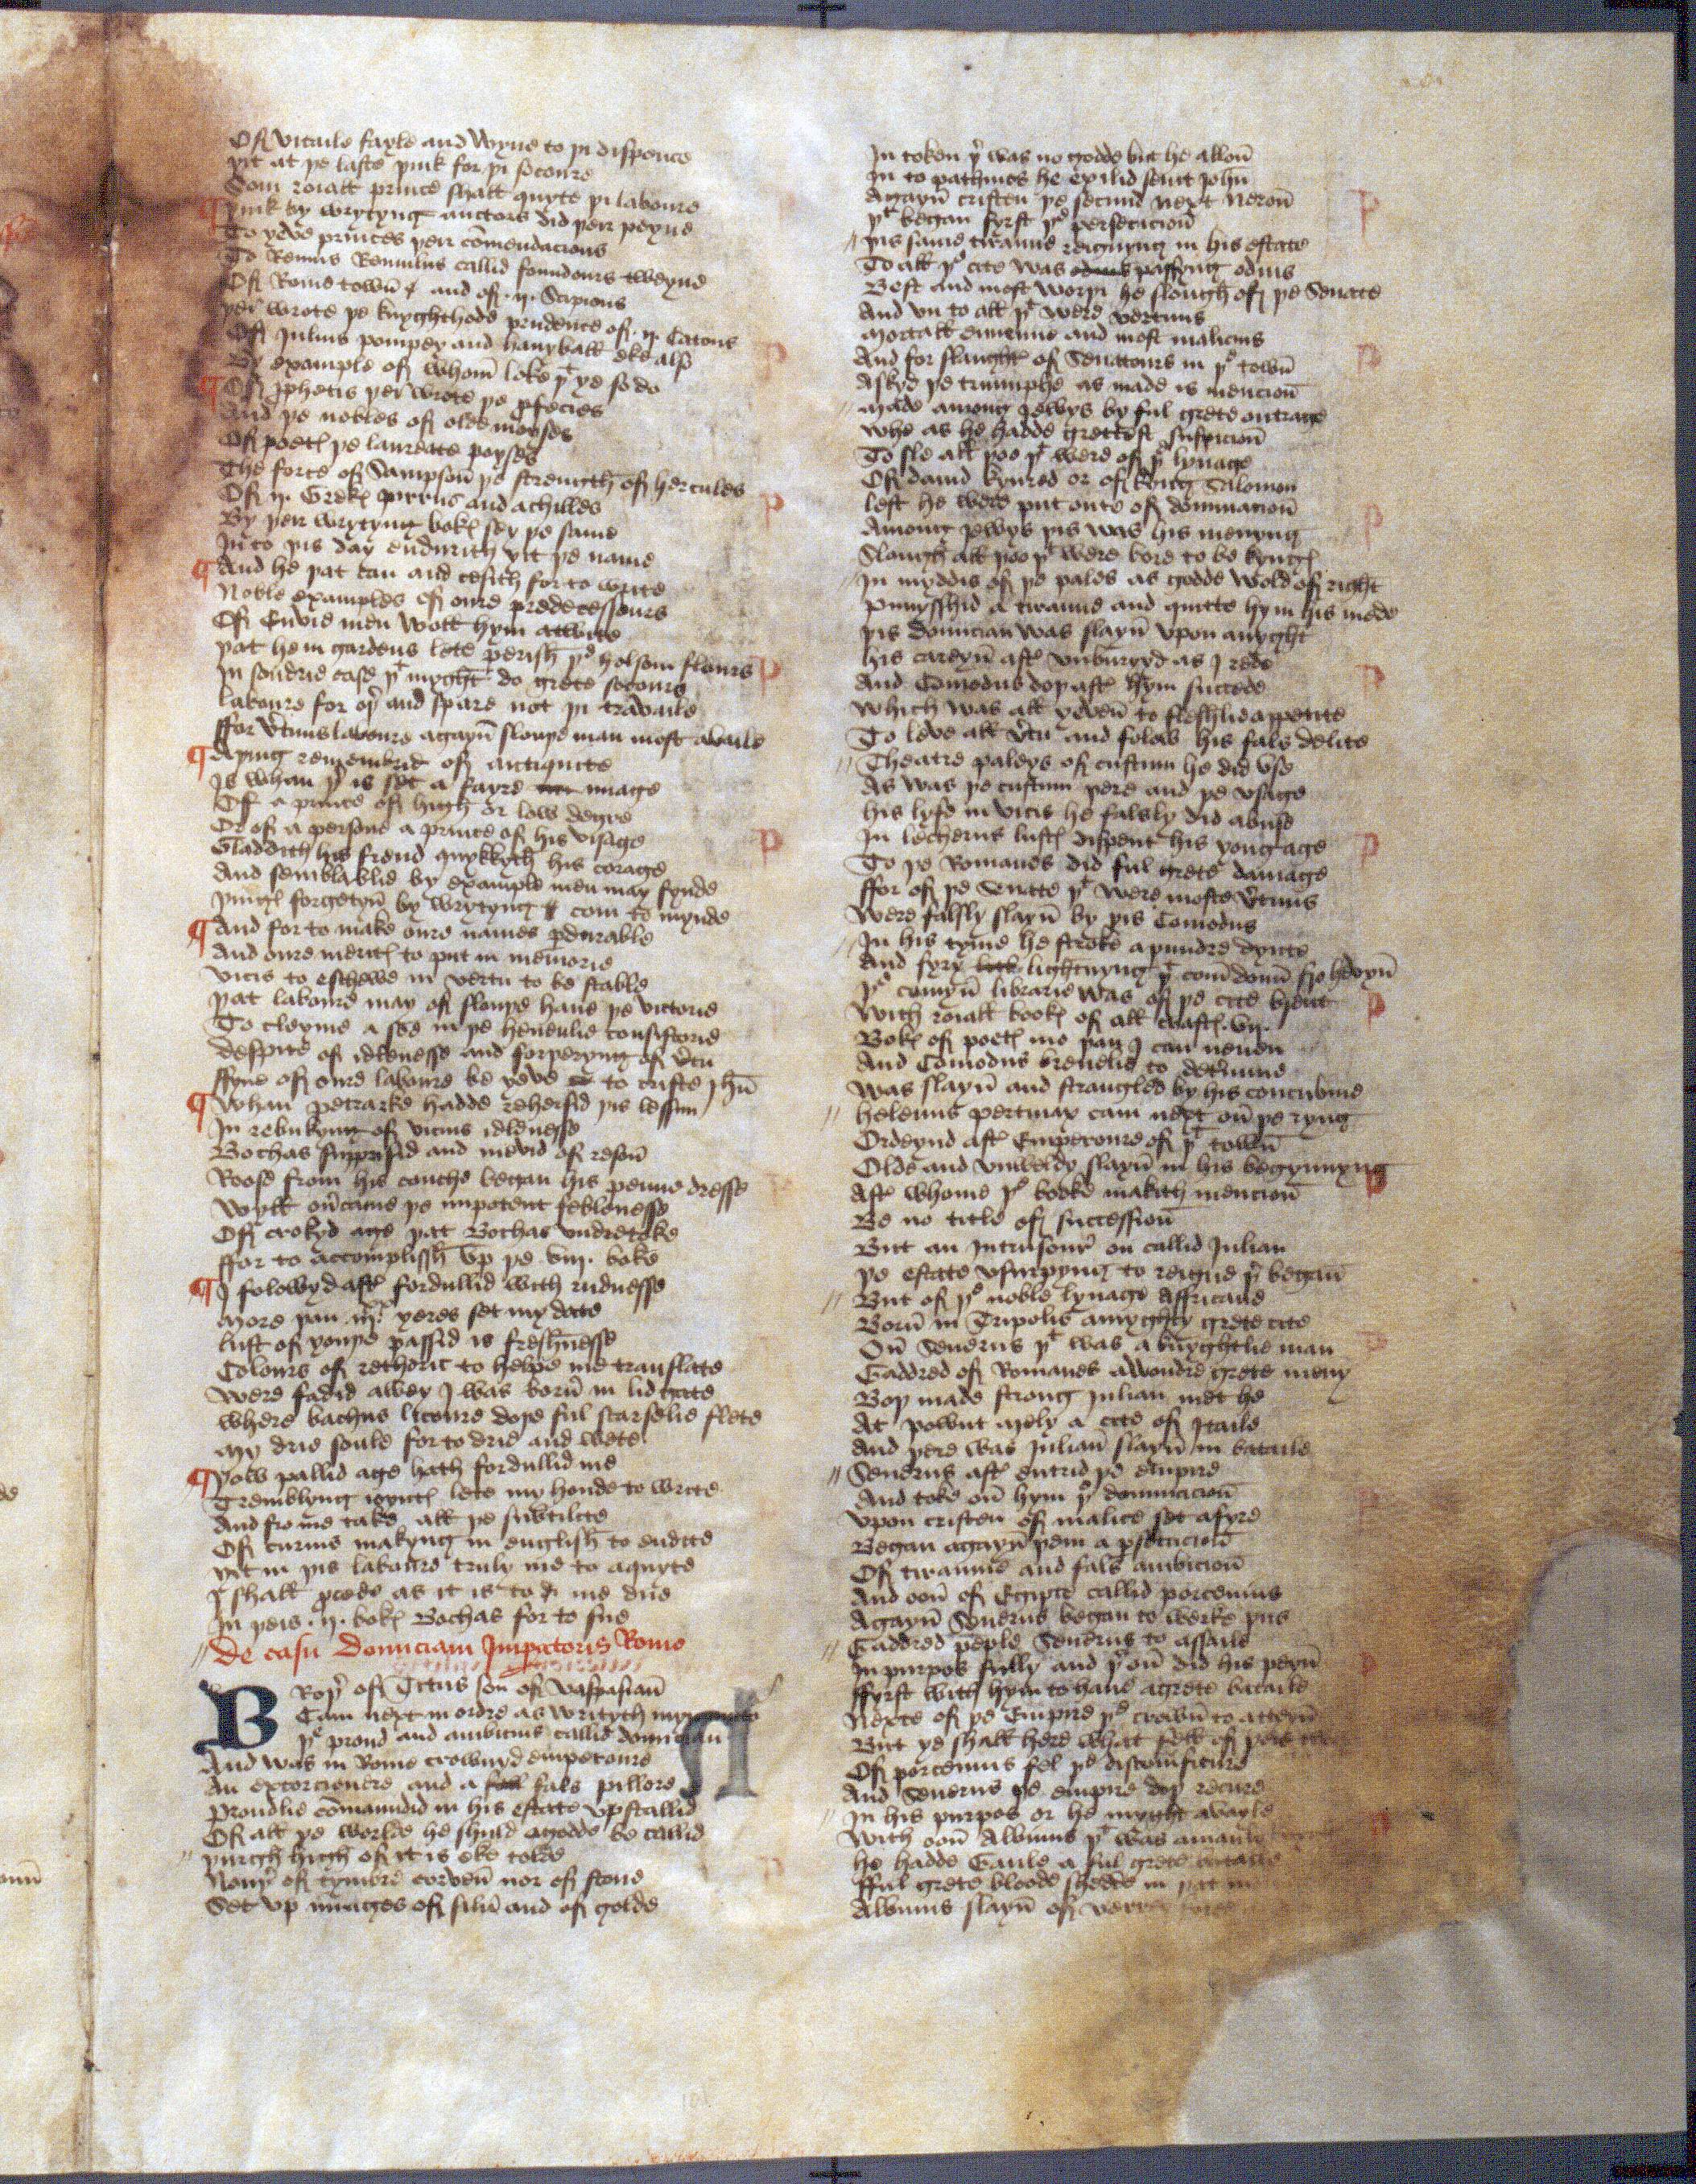 Of vitaile fayle and wyne to þi dispence
yit at þe laste þink for þi socoure
Som roiall prince shall quyte þi laboure
¶ þink by wrytyng auctors did þeir peyne
To yeve princes þeir cōmendacions
To Remus Romulus callid foundours tweyne
Of Rome towñ and of .ij. Scipions
þei wrote þe knyghthode prudence of .ij. Catons
Of Julius pompey and hanyball eke also
By example of whom̄ loke þt ye so do
¶ Of ꝓphetis þei wrote þe ꝓfecies
And þe nobles of olde moyses
Of poetꝭ þe laureate poyses
The force of Sampsoñ þe strength of hercules
Of .ij. Grekꝭ pirrus and achilles
By þeir wrytyng bokꝭ sey þe same
In to þis day endurith yit þe name
¶ And he þat can and cesith for to write
Noble examples of oure predecessours
Of Envie men woll hym attwite
þat he in gardeus lete perish þe holsom flours
In soudrie case þt myght do grete socours
laboure for oþ and spare not þi travaile
ffor v̄tuus laboure agayñ slouþe man most availe
¶ Aþing remembrid of antiquite
Is whan þ is set a fayre image
Of a prince of high or low degre
Or of a persone a prince of his visage
Gladdith his frend quykkyth his corage
And semblablie by example men may fynde
þingꝭ forgetyñ by wrytyng com to mynde
¶ And for to make oure names ꝑdurable
And oure meritꝭ to put in memorie
vicis to eschewe in vertu to be stable
þat laboure may of slouþe haue þe victorie
To cleyme a see in þe heuenlie consistorie
despite of idlenesse and forþeryng of v̄tu
ffyne of oure laboure be yeve to criste Jhū
¶ whan petrarke hadde rehersid þis lessun
In rebukyng of vicius idlenesse
Bochas supprisid and mevid of resoñ
Roose from his couche began his penne dresse
wyll oūcame þe impotent feblenesse
Of crokyd age þat Bochas vndretoke
ffor to accomplissh vp þe .viij. boke
¶ I folowyd aftꝭ fordullid with rudnesse
More þan .iij. yeres set my date
lust of youþe passid is freshnesse
Colours of rethoric to helpe me translate
were fadid awey I was borñ in lidgate
where bachus licoure doþe ful scarselie flete
My drie soule for to drie and wete
¶ yow pallid age hath fordullid me
Tremblyng ioyntꝭ lete my honde to write
And fro me take all þe subtilite
Of curius makyng in english to endite
yit in þis laboure truly me to aquyte
I shall ꝓcede as it is to me due
In þeis .ij. bokꝭ Bochas for to sue
// De casu Domiciani Imꝑatoris Rome
BRoþ of Titus son of vaspasiañ
Cam next in ordre as writyth
þe proud and ambicius callid domician
And was in Rome crownyd emperoure
An extorcionere and a fals pillore
Proudlie cōmaundid in his estate vpstallid
Of all þe worlde he shuld agodde be callid
// þurgh high of it is eke tolde
Nouþ of tymbre corveñ nor of stone
Set vp images of silū and of golde
In token þ was no godde but he alloñ
In to pathmos he exilid seint John
Agayñ cristen þe secund next Neroñ
þt began fyrst þe persecucioñ
// þis same tiraunt reignyng in his estate
To all þe cite was passyng odius
Best and most worþi he slough of þe Senate
And vn to all þt were vertuus
Mortall enmenne and most malicius
And for slaughtꝭ of Senatours in þe towñ
Askyd þe triumphe as made is mencioñ
// Made among jewys by ful grete outrage
whe as he hadde grettest suspicioñ
To sle all þoo þt were of þe lynage
Of dauid kynred or of kyng Salomon
lest he were put oute of dominacioñ
Among jewys þis was his menyng
Slough all þoo þt were bore to be kyngꝭ
// In myddis of þe paleis as godde wold of right
Punysshid a tiraunt and quitte hym his mede
þis domician was slayñ vpon anyght
his careyñ aftꝭ vnburyyd as I rede
And Comodus doþ aftꝭ hym succede
which was all yeveñ to fleshlie appetite
To leve all v̄tu and folow his fals delite
// Theatre paleys of custum he did vse
As was þe custum þere and þe vsage
his lyfe in vicis he falsly did abuse
In lecherus lustꝭ dispent his yong age
To þe Romanes did ful grete damage
ffor of þe Senate þt were moste v̄tuus
were falsly slayñ by þis Comodus
// In his tyme he stroke a þundre dynte
And fyry lightnyng þt com douñ fro heveyñ
þe comyñ librarie was of þe cite brent
with roiall bookꝭ of all craftꝭ .vij.
Bokꝭ of poetꝭ mo þan I can neuen
And Comodus breuelie to determine
was slayñ and strangled by his concubine
// helenus pertinax cam next oñ þe ryng
Ordeynd aftꝭ Emperoure of þt towñ
Olde and vnweldy slayñ in his begynnyng
Aftꝭ whome þe booke makith mencioñ
Be no title of successioñ
But an intrusour oñ callid Julian
þe estate vsurpyng to reigne þ begañ
// But of þe noble lynage Affricane
Borñ in Tripolis amyghty grete cite
Oñ Seuerus þt was a knyghtlie man
Gaddred of Romanes awondre grete meny
Boþ made strong Julian met he
At pownt Mely a cite of Itaile
And þere was Julian slayñ in bataile
// Seuerus aftꝭ entrid þe empire
And toke oñ hym þe dominacioñ
vpon cristen of malice set afyre
Began agayñ þem a ꝑsecucioñ
Of tiraunie and fals ambicioñ
And ooñ of Egipte callid porcenius
Agayñ Seuerus began to werke þus
// Gaddred peple Seuerus to assaile
In purpos fully and þ oñ did his peyñ
ffyrst with hym to haue agrete bataile
Nexte of þe Empire þe crowñ to atteyñ
But ye shall here what fell of
Of porcenius fel þe discomfiture
And Seuerus þe empire doþ recure
// In his purpos or he myght avayle
with ooñ Albinus þt was
he hadde Gaule a ful grete bataile
fful grete bloode shedde in þat
Albinus slayñ of